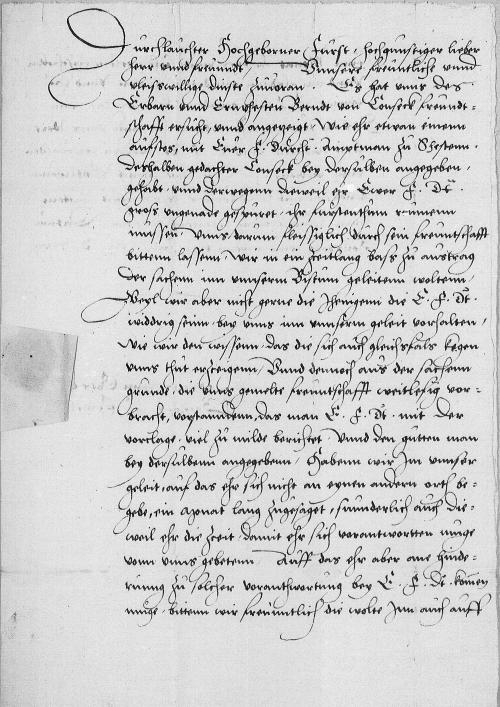 Durchlauchter Hochgeborner Furst, hochgunstiger lieber
Herr vnnd freundt, Vnnsere freuntliche vnnd
vleiswillige dinste zuuoran. Es hat vnns des
Erbarn vnnd Ernuhesten Berndt von Conseck freundt-
schafft ersucht, vnnd angezeigt, Wie ehr etwan einenn
aufstos, mit Euer F. Durcht. Amptman zu
Derhalben gedachter Conseck bey derselben angegeben,
gehabt, vnnd derwegenn dieweil ehr Ewer F. Dt.
gross vngenade gespuret, ihr furstenthum reumenn
mussen, Vnns darum fleissiglich durch sein freuntschafft
bittenn lassenn, Wir in ein zeitlang bass zu austrag
der sachenn inn vnnserm Bistum geleitenn woltenn,
Weyl wir aber nicht gerne die Jhenigenn die E. F. Dt.
widdrig seinn, bey vnns inn vnnserm geleit vorhalten,
Wie wir den wissenn, das die sich auch gleichsfals kegen
vnns thut erzeigenn, Vnnd dennoch aus der sachenn
grunde, die vnns gemelte freuntschafft weitlefig vor-
bracht, vorstandenn, das man E. F. Dt. mit der
vortlage, viel zu milde berichtet, Vnnd den gutten man
bey derselbenn angegebenn, Habenn wir Im vnnser
geleit, auf das ehr sich nicht an eynen andern orth be-
gebe, ein Monat lang zugesaget, sunderlich auch die-
weil ehr die zeit, damit ehr sich verantwortten muge
vonn vnns gebetenn, Auff das ehr aber ane hinde-
runng zu solcher verantwortung bey E. F. Dt. komen
muge, bittenn wir freuntlich die wolte Im auch auff